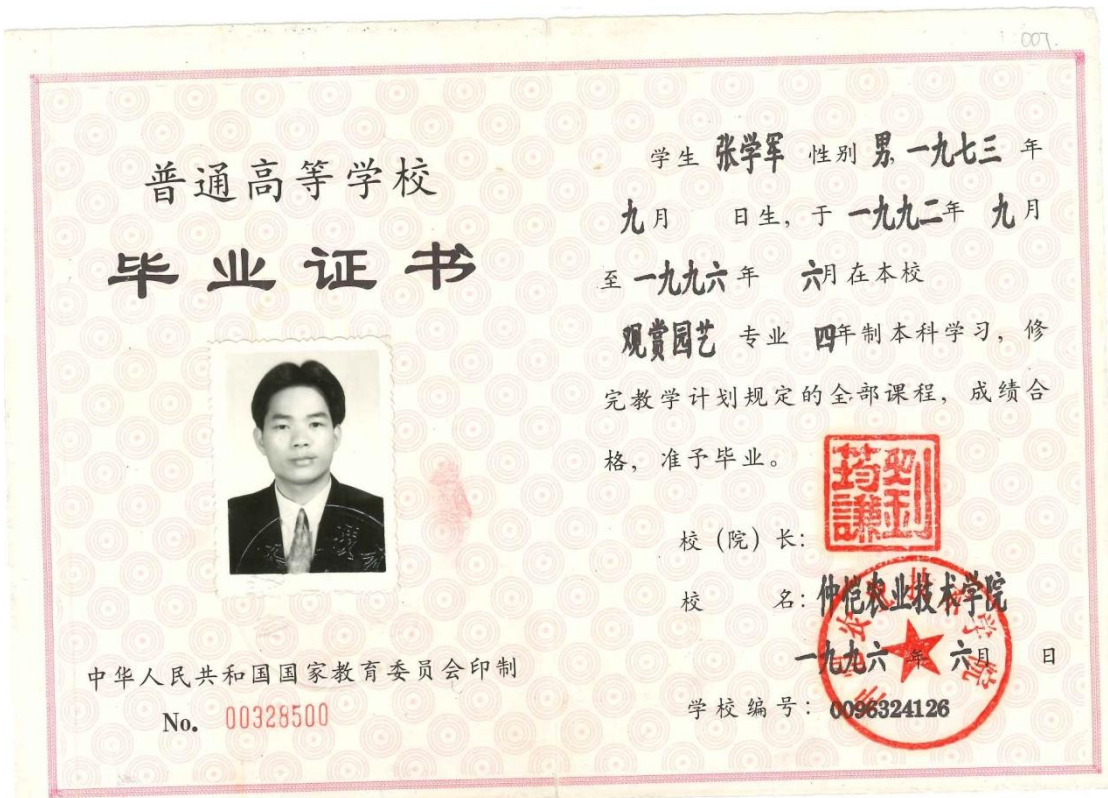 007.
普通高等学校
毕业证书
中华人民共和国国家教育委员会印制
No. 00328500
学生 张学军 性别 男, 一九七三 年
九月 日生, 于 一九九二年 九月
至 一九九六 年 六月 在本校
观赏园艺 专业 四年制本科学习, 修
完教学计划规定的全部课程, 成绩合
格, 准予毕业。
校 (院) 长:
校 名: 仲恺农业技术学院
一九九六 年 六月 日
学校编号: 0096324126
仲恺农业技术学院